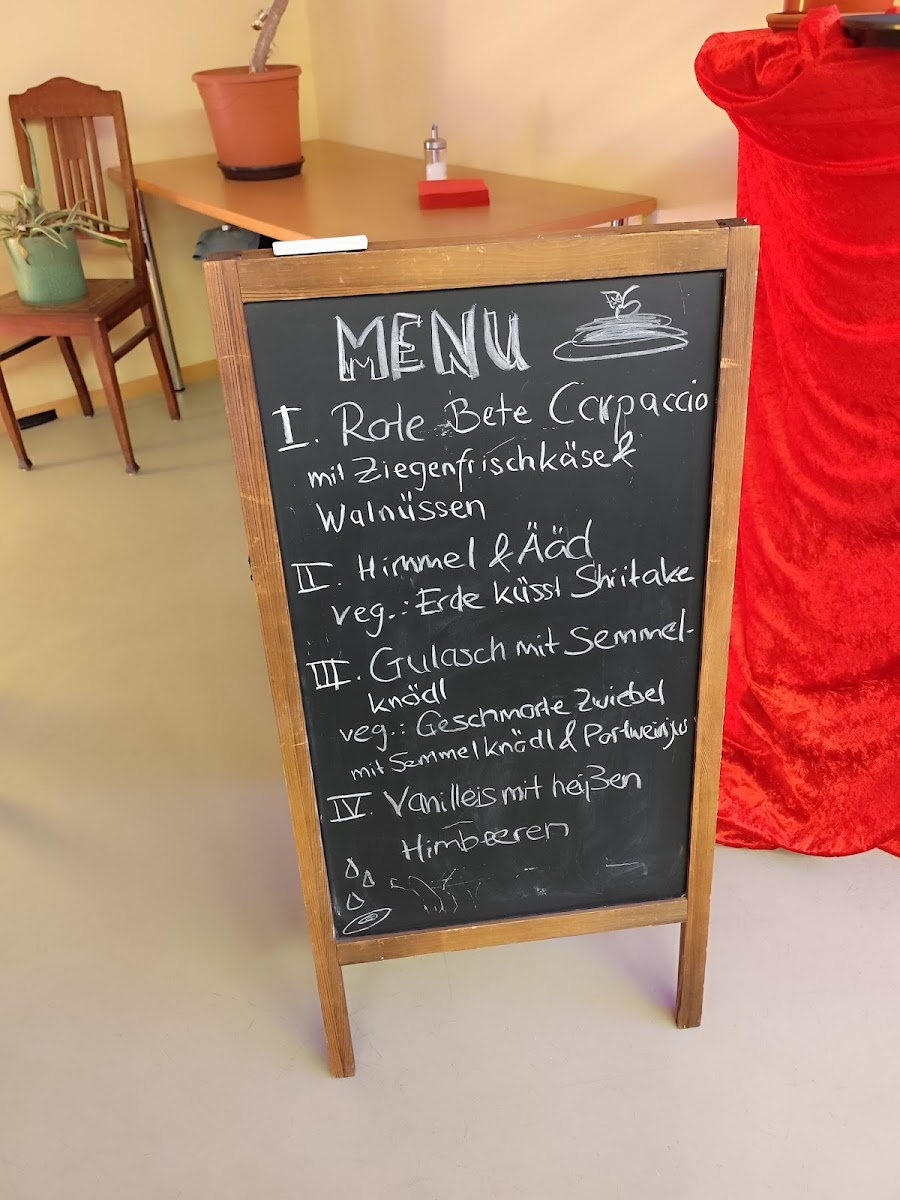 MENU
I. Rote Bete Carpaccio
mit Ziegenfrischkäse &
Walnüssen
II. Himmel & Ääd
veg.: Erde küsst Shiitake
III. Gulasch mit Semmel-
knödl
veg.: Geschmorte Zwiebel
mit Semmelknödl & Portweinjus
IV. Vanilleis mit heißen
Himbeeren